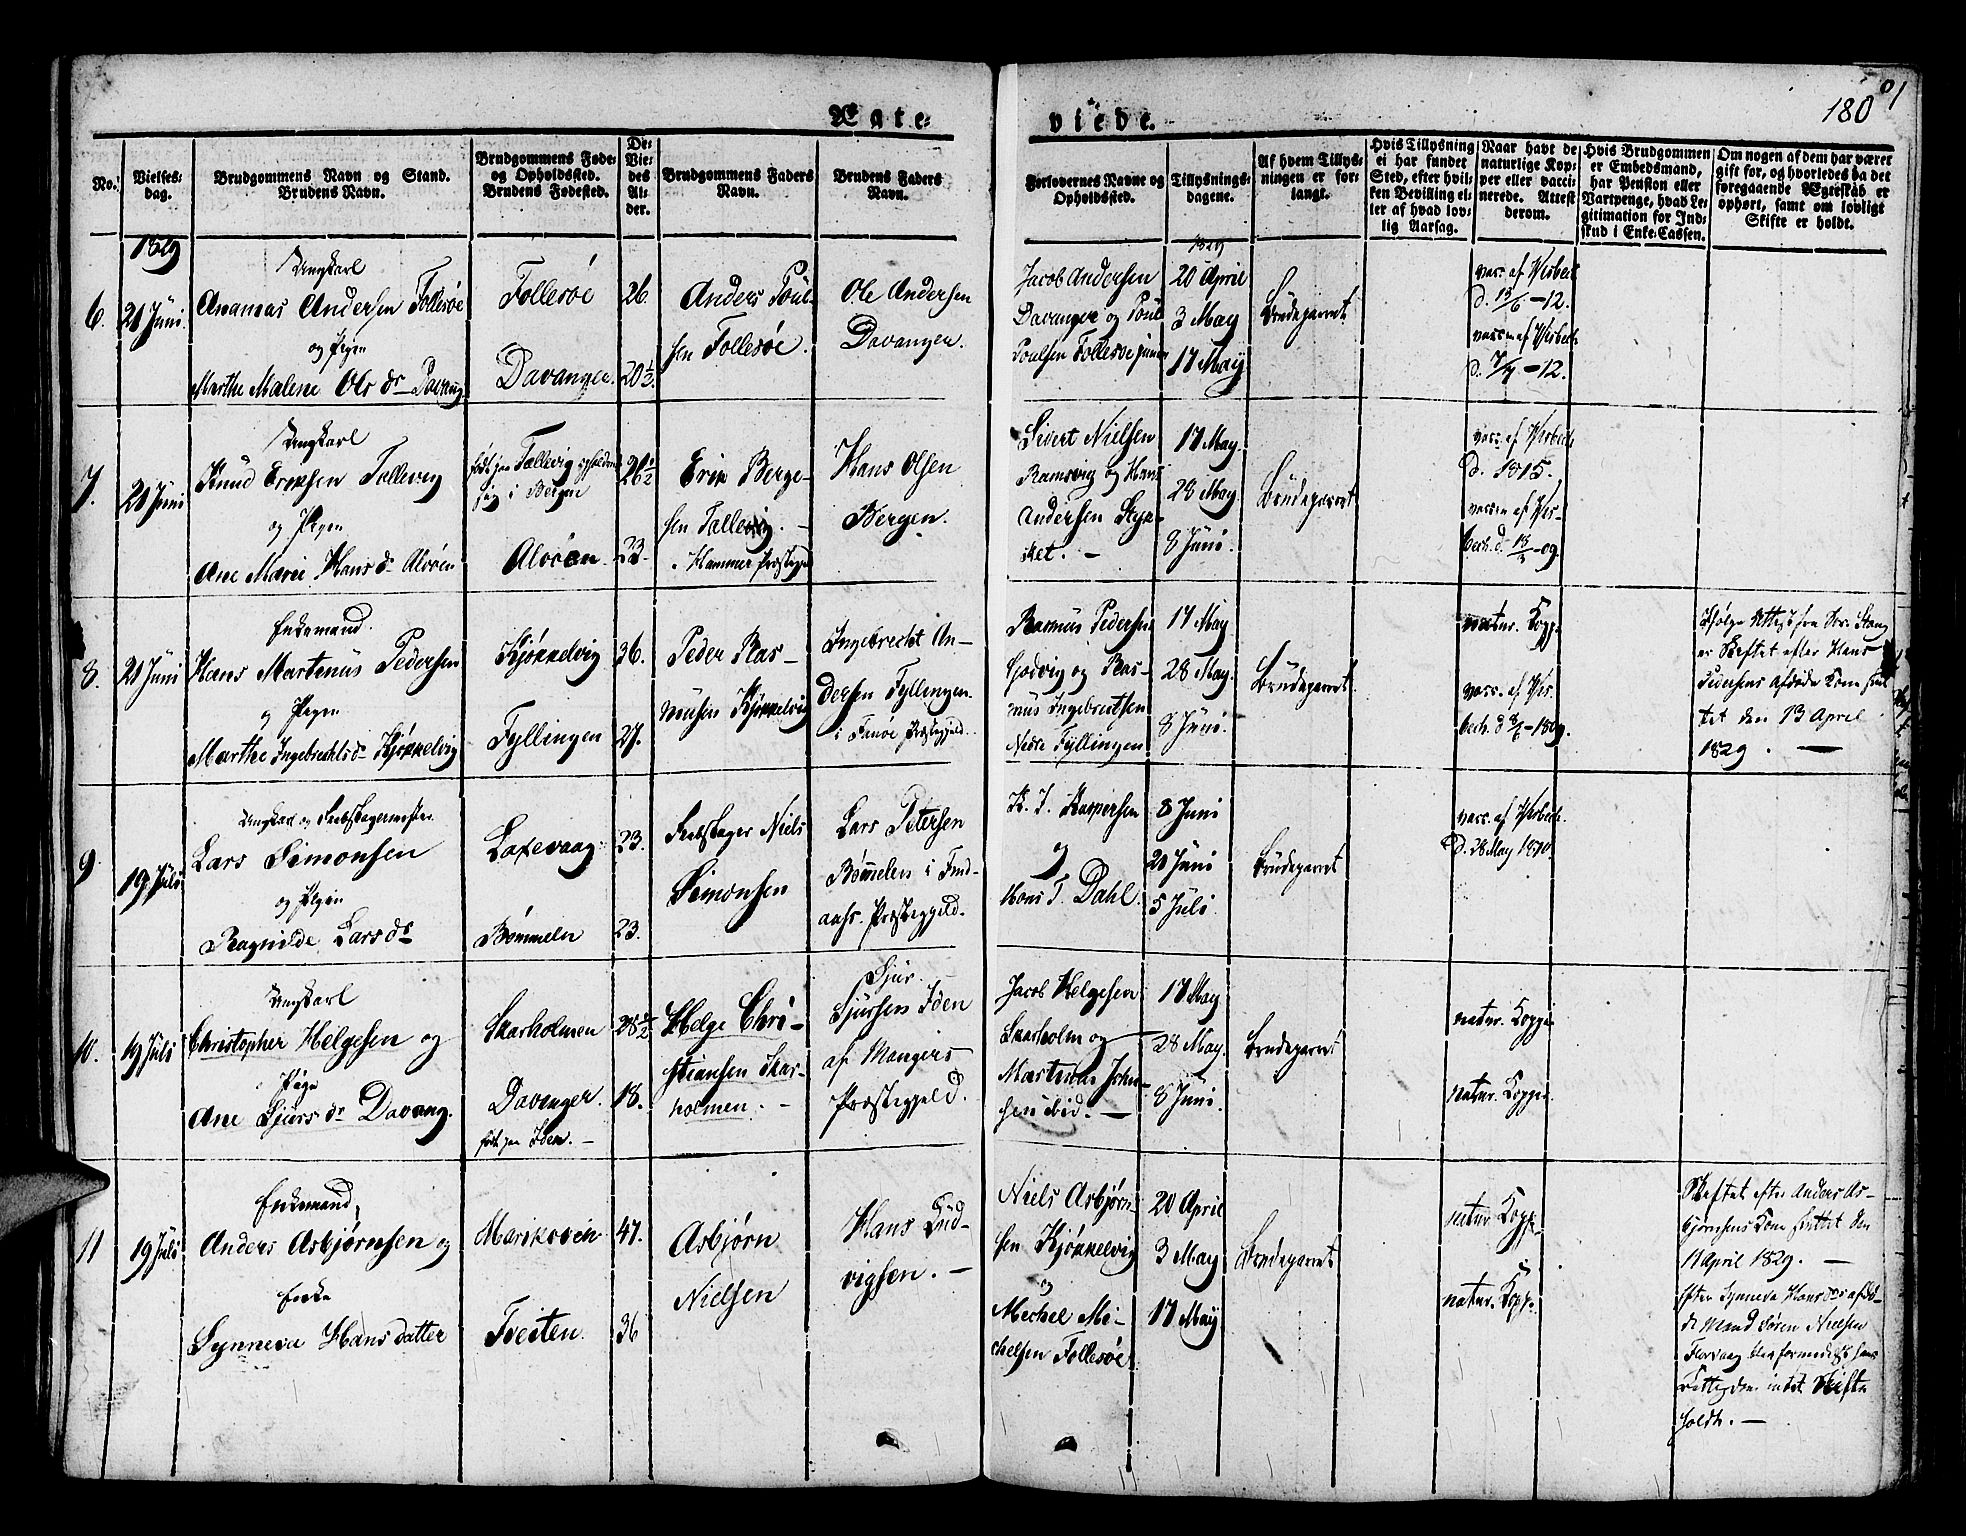 Ægte-
viede.
180
No.
Vielses-
dag.
Brudgommens Navn og Stand.
Brudens Navn.
Brudgommens Føde-
og Opholdssted.
Brudens Fødested.
De
Vie-
des
Al-
der.
Brudgommens Faders
Navn.
Brudens Faders
Navn.
Forlovernes Navne og
Opholdssted.
Tillysnings-
dagene.
Af hvem Tillys-
ningen er for-
langt.
Hvis Tillysning
ei har fundet
Sted, efter hvil-
ken Bevilling el-
ler af hvad lov-
lig Aarsag.
Naar havt de
naturlige Kop-
per eller vacci-
nerede. Attest
derom.
Hvis Brudgommen
er Embedsmand,
har Pension eller
Vartpenge, hvad Le-
gitimation for Ind-
skud i Enke-Cassen.
Om nogen af dem har været
gift før, og hvorledes da det
foregaaende Ægteskab er
ophørt, samt om lovligt
Skifte er holdt.
1829
6.
21 Juni
Ungkarl
Ananias Andersen Follesøe
og Pigen
Marthe Malene Ols dr Davang
Follesøe
Davanger
26
20 1/2
Anders Poul-
sen Follesøe.
Ole Andersen
Davanger.
Jacob Andersen
Davanger og Poul
Poulsen Follesøe junior
1829
20 April
3 May
17 May
Brudeparret
vacc. af Wesbech
d. 13/6 - 12.
vaccin af Wesbech
d. 7/7 - 12.
7.
21 Juni
Ungkarl
Knud Ericksen Tollevig
og Pigen
Ane Marie Hans dr Alvøen
Alvøen
26 1/2
23.
Erik Berge-
sen Tollevig. -
Hammer Præsteg
Hans Olsen
Bergen.
Sivert Nielsen
Ramsvig og Hans
Andersen Skya-
sket. -
17 May.
28 May.
8 Juni.
Brudeparret
vacc. af Wesbech
d. 1815.
vaccin af Wes-
bech. d. 13/7 - 09.
8.
21 Juni
Enkemand.
Hans Martinus Pedersen
og Pigen
Marthe Ingebrechts dr Kjøkkelvig
Kjøkkelvig
Fyllingen
36.
27.
Peder Ras-
musen Kjøkkelvig
Ingebrecht An-
dersen Fyllingen
i Finøe Præstegjeld.
Rasmus Pedersen
Godvig og Ras-
mus Ingebrechtsen
Nedre Fyllingen
17 May
28 May.
8 Juni.
Brudeparret
natur. Kopper
vacc. af Wes-
bech. d. 8/6 - 1829.
er Skiftet efter Hans
Pedersens afdøde Kone slut
tet den 13 April
1829. -
9
19 Juli
Ungkarl og Reebslagermester
Lars Simonsen
og Pigen
Ragnilde Lars dr
Laxevaag
Bømmelen
23.
23.
Reebslager Niels
Simonsen
Lars Petersen
Bømmelen i Find-
aahs Præstegjeld.
K. J. Kaspersen
og
Hans T. Dahl.
8 Juni
21 Juni
5 Juli.
Brudeparret
vacc. af Wesbech.
d. 28 May 1810.
10.
19 Juli
Ungkarl
Christopher Helgesen og
Pige
Ane Sjurs dr Davang.
Skarholmen
Davanger.
født paa Iden. -
28 1/2
18.
Helge Chri-
stiansen Skar-
holmen. -
Sjur
Sjursen Iden
af Mangers
Præstegjeld.
Jacob Helgesen
Skarholm og
Martinus John-
sen ibid. -
17 May
28 May.
8 Juni.
Brudeparret
natur. Kopper
natur. Kopper
11
19 Juli
Enkemand,
Anders Asbjørnsen og
Enke
Synneva Hans datter
Marikoven
Tveiten
47.
36
Asbjørn
Nielsen
Hans Lud-
vigsen. -
Niels Asbjørn-
sen Kjøkkelvig
og
Mechel Mi-
chelsen Follesøe
20 April
3 May
17 May
Brudeparret
natur. Kopp.
natur. Kopp.
Skiftet efter Anders As-
bjørnsens Kone sluttet den
11 April 1829. -
Efter Synneva Hans drs afdø-
de Mand Søren Nielsen
Florvaag blev formedelst hans
Fattigdom intet Skifte
holdt. -